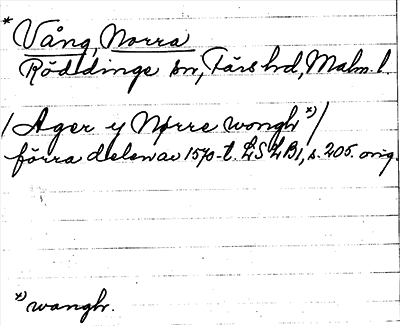 * Vång, Norra
Röddinge sn, Färs hd, Malm. l.
/Ager y Nørre wongh *)/
förra delen av 1570-t. LSLB1, s. 205. orig.
*) wangh.